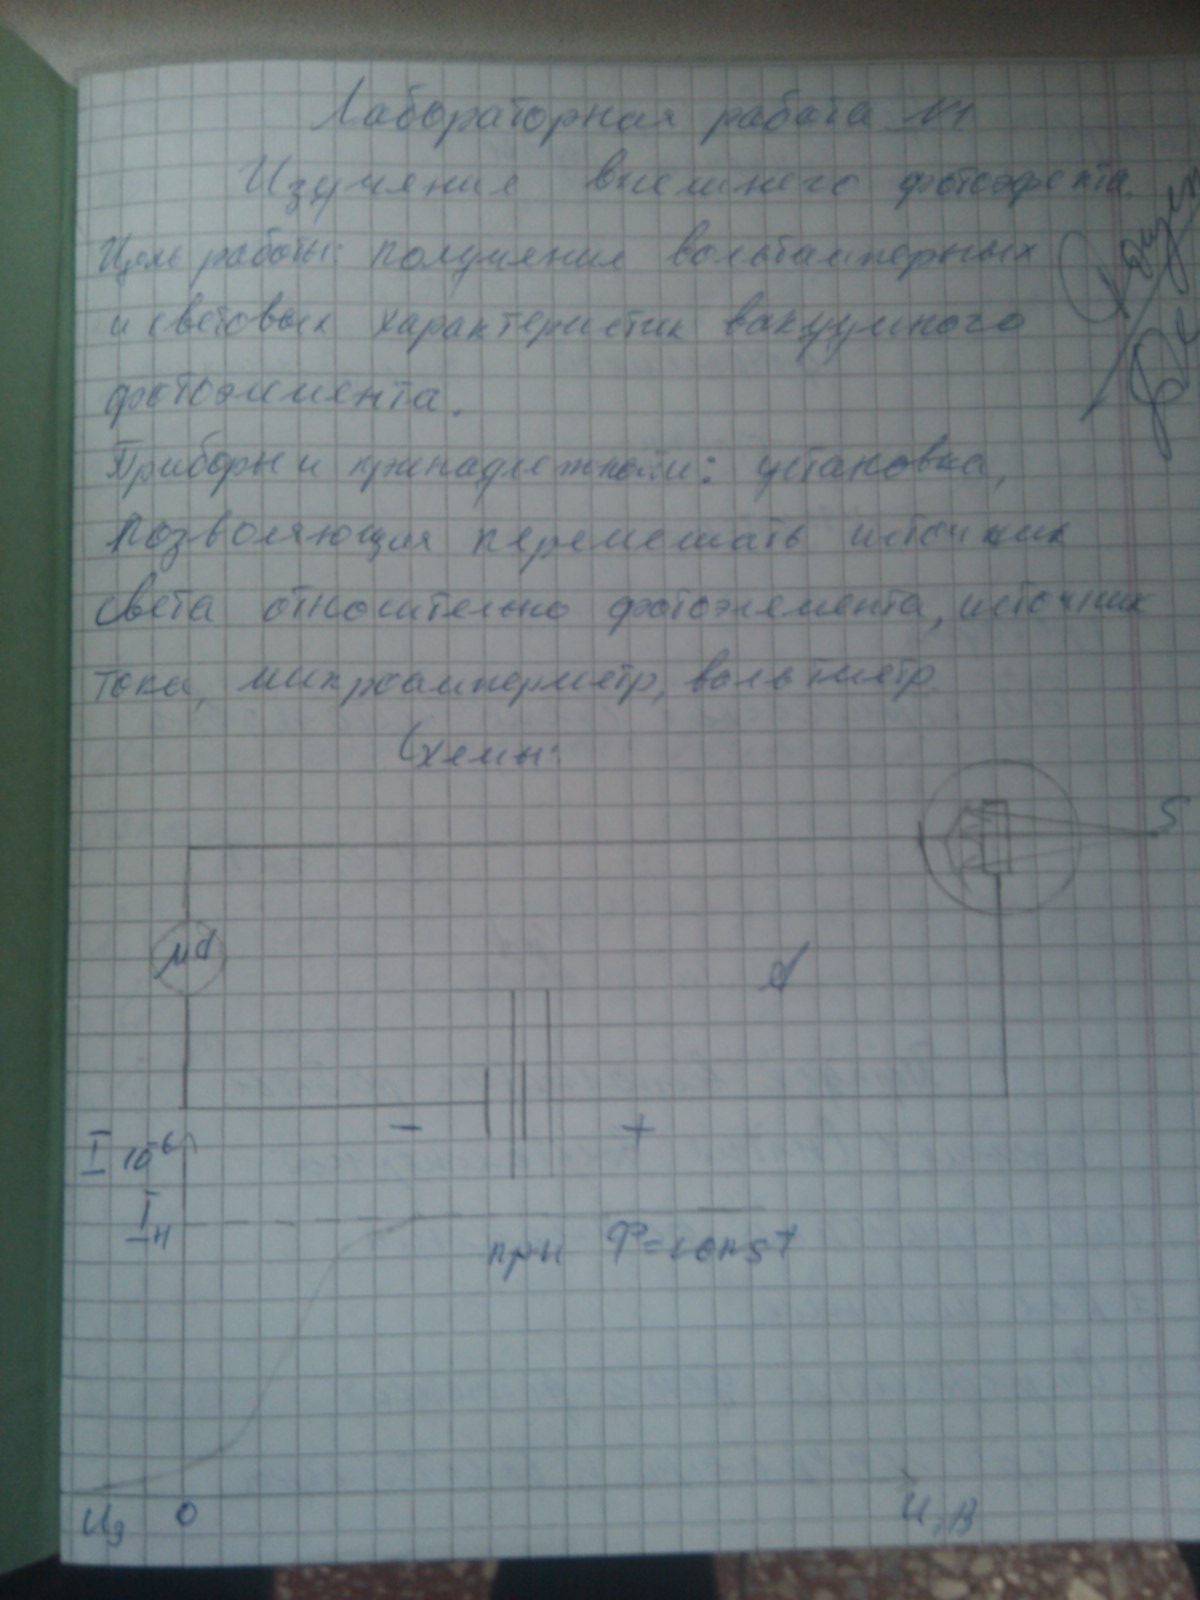 Лабораторная работа №1
Изучение внешнего фотоэфекта.
Цель работы: получение вольтамперных
и световых характеристик вакуумного
фотоэлемента.
Приборы и принадлежности: установка,
позволяющая перемещать источник
света относительно фотоэлемента, источник
тока, микроамперметр, вольтметр
Схемы:
S
μA
- +
I 10⁻⁶
Iн
при Ф=const
Uз 0 U, В